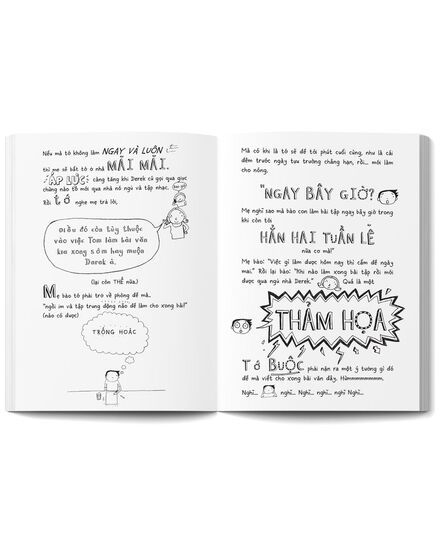 Nếu mà tớ không làm NGAY VÀ LUÔN
thì mẹ sẽ bắt tớ ở nhà MÃI MÃI.
ÁP LỰC càng tăng khi Derek cứ gọi qua giục
chúng nào tớ mới qua nhà nó ngủ và tập nhạc.
Rồi tớ nghe mẹ trả lời,
Điều đó còn tùy thuộc
vào việc Tom làm bài văn
kia xong sớm hay muộn
Derek à.
(lại còn THẾ nữa)
Mẹ bảo tớ phải trở về phòng để mà..
"ngồi im và tập trung động não để làm cho xong bài!"
(não có được)
TRỐNG HOÁC
Mà có khi là tớ sẽ để tới phút cuối cùng, như là cái
đêm trước ngày tựu trường chẳng hạn, rồi... mới làm
cho nóng.
"NGAY BÂY GIỜ?
Mẹ nghĩ sao mà bảo con làm bài tập ngay bây giờ
trong khi còn tới
HẲN HAI TUẦN LỄ
nữa cơ mà!"
Mẹ bảo: "Việc gì làm được hôm nay thì cấm để ngày
mai." Rồi lại bảo: "Khi nào làm xong bài tập rồi mới
được qua ngủ nhà Derek." Quả là một
THẢM HỌA
Tớ Buộc phải nặn ra một ý tưởng gì đó
để mà viết cho xong bài văn đây, Hừmmmmmmm,
Nghĩ... nghĩ... Nghĩ... nghĩ nghĩ Nghĩ...